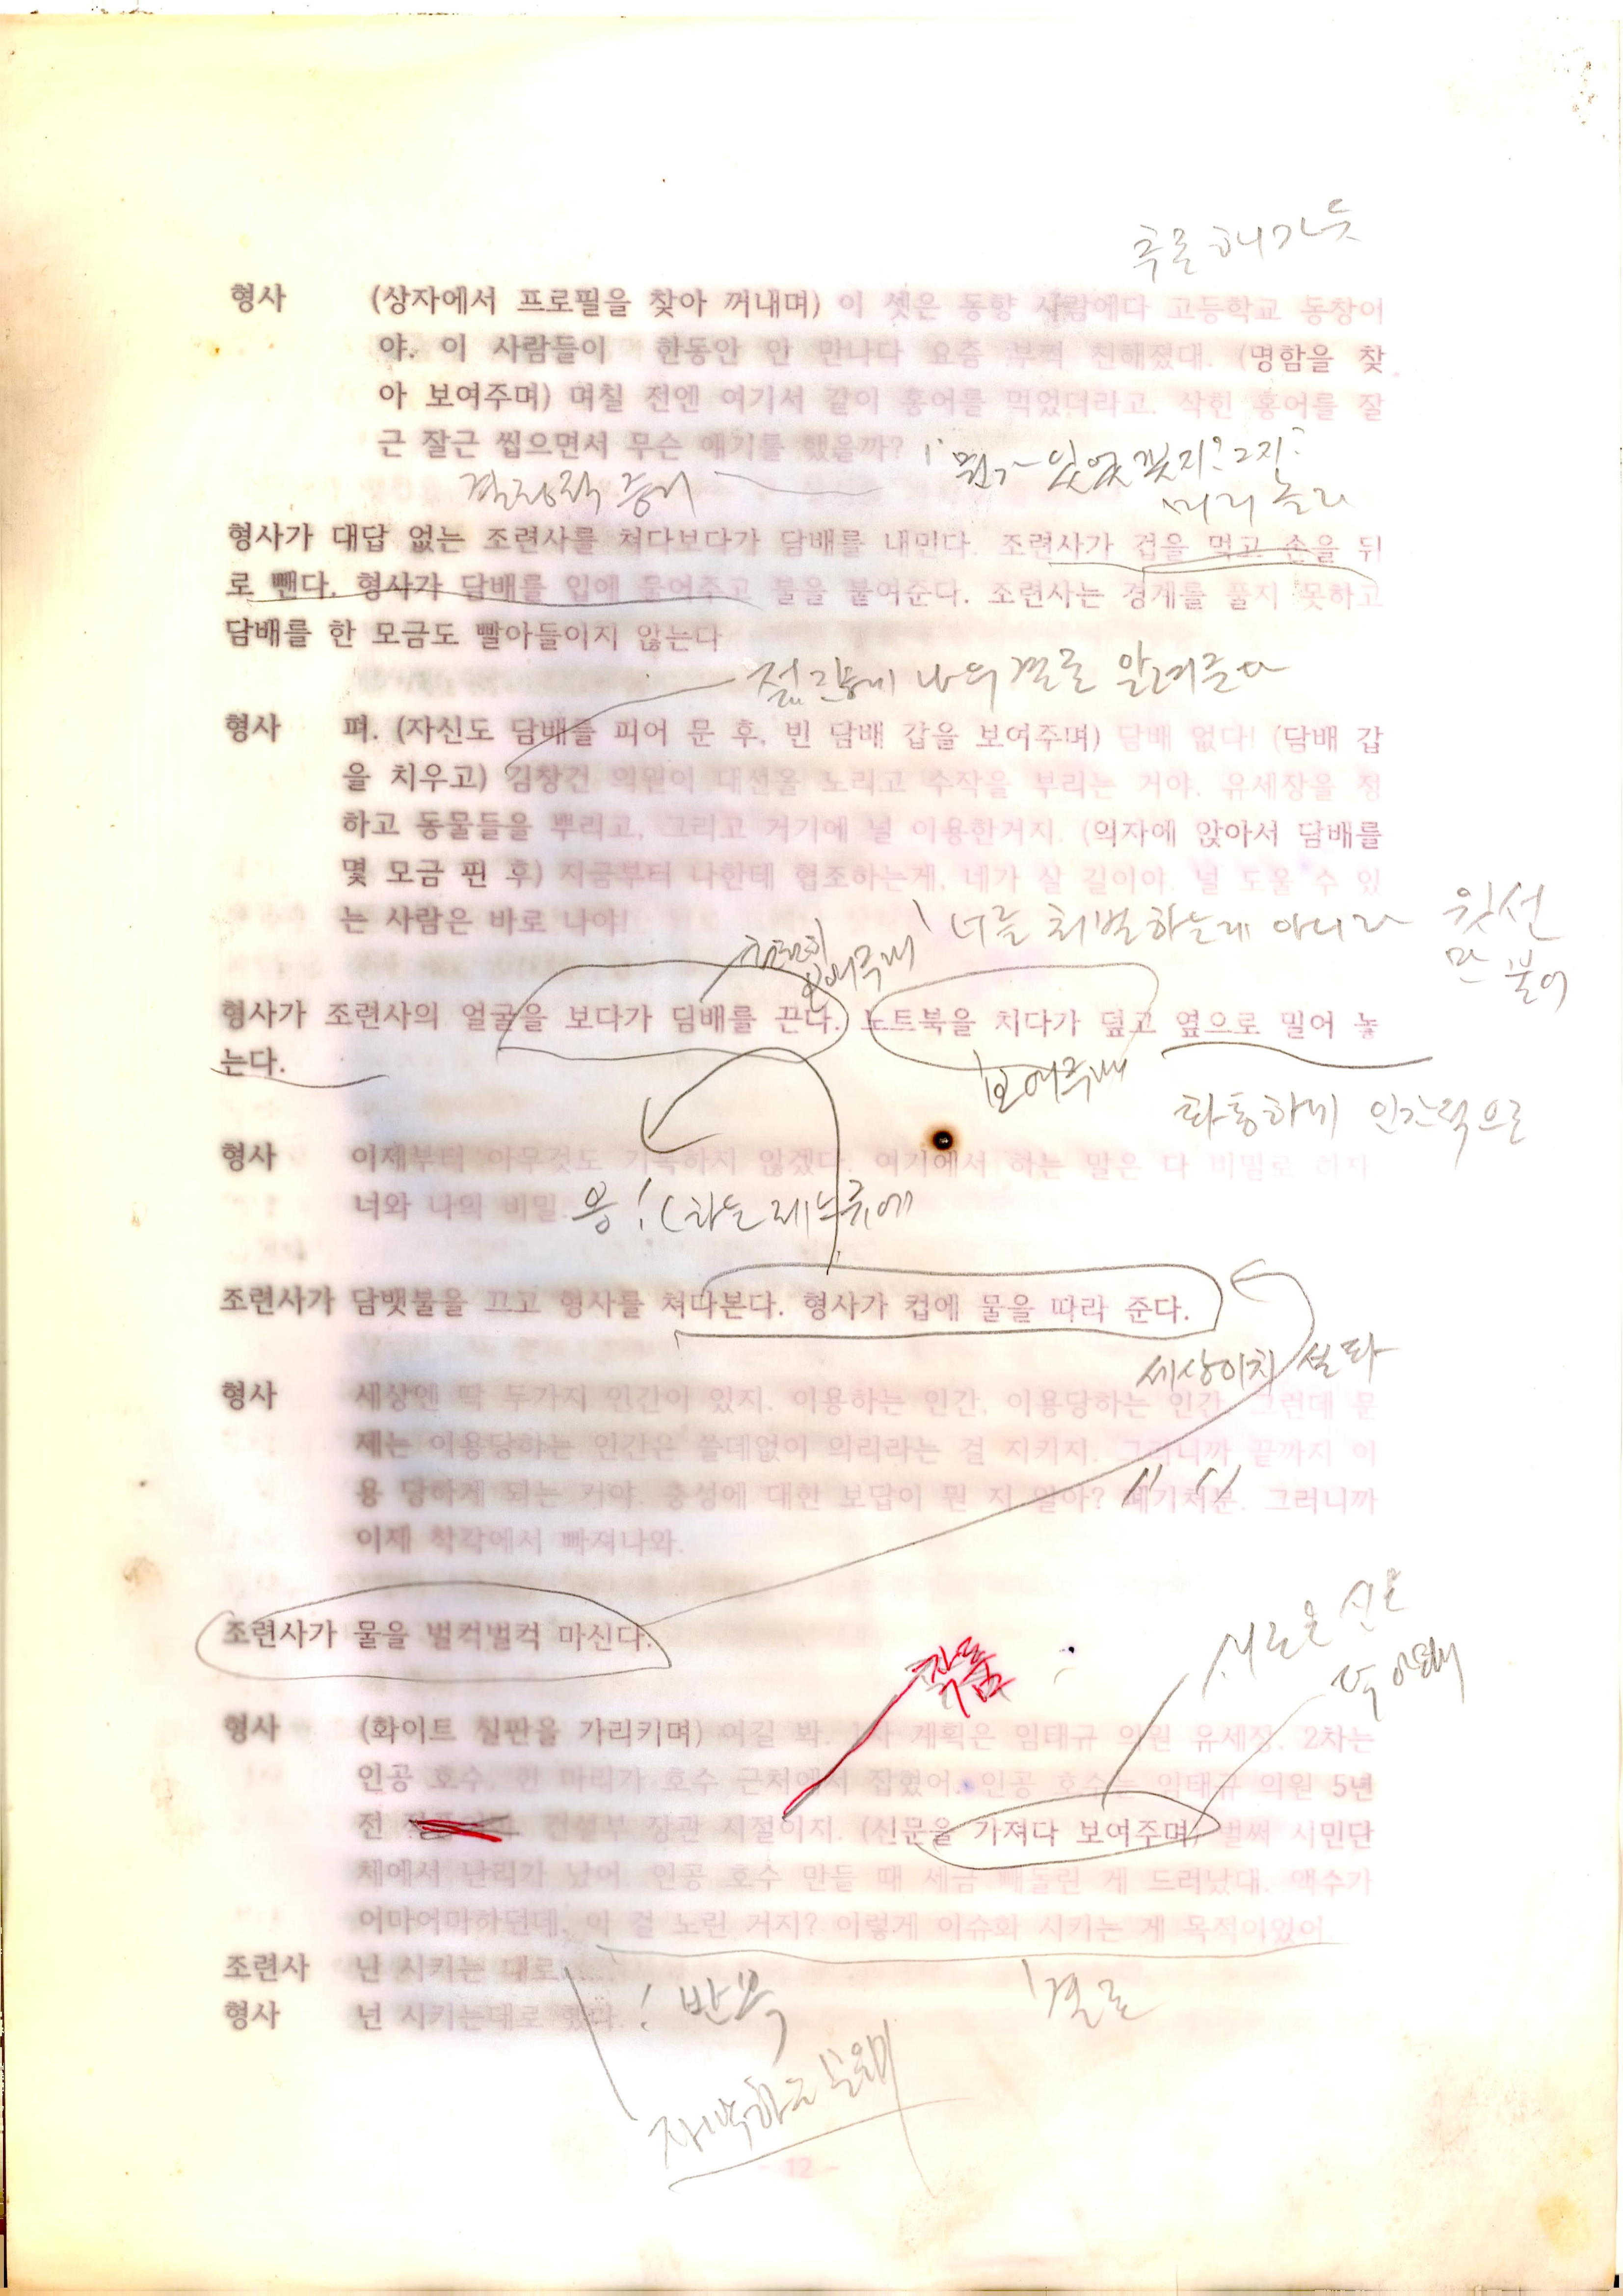 추론해가듯
형사 (상자에서 프로필을 찾아 꺼내며) 이 셋은 동향 사람에다 고등학교 동창이
야. 이 사람들이 한동안 안 만나다 요즘 부쩍 친해졌대. (명함을 찾
아 보여주며) 며칠 전엔 여기서 같이 홍어를 먹었더라고. 삭힌 홍어를 잘
근 잘근 씹으면서 무슨 얘기를 했을까?
뭔가 있었겠지? 그지?
결정적 증거
형사가 대답 없는 조련사를 쳐다보다가 담배를 내민다. 조련사가 겁을 먹고 손을 뒤
로 뺀다. 형사가 담배를 입에 물여주고 불을 붙여준다. 조련사는 경계를 풀지 못하고
담배를 한 모금도 빨아들이지 않는다
나의 결론 알려준다
형사 펴. (자신도 담배를 피어 문 후, 빈 담배 갑을 보여주며) 담배 없다! (담배 갑
을 치우고) 김창건 의원이 대선을 노리고 수작을 부리는 거야. 유세장을 정
하고 동물들을 뿌리고, 그리고 거기에 널 이용한거지. (의자에 앉아서 담배를
몇 모금 핀 후) 지금부터 나한테 협조하는게, 네가 살 길이야. 널 도울 수 있
는 사람은 바로 나야!
너를 처벌하는게 아니라 윗선
만 불어
보여주며
형사가 조련사의 얼굴을 보다가 담배를 끈다. 노트북을 치다가 덮고 옆으로 밀어 놓
는다.
보여주며
화통하게 인간적으로
형사 이제부터 아무것도 기록하지 않겠다. 여기에서 하는 말은 다 비밀로 하지
너와 나의 비밀.
응! (하는 제스츄에
조련사가 담뱃불을 끄고 형사를 쳐다본다. 형사가 컵에 물을 따라 준다.
세상이치 설파
형사 세상엔 딱 두가지 인간이 있지. 이용하는 인간, 이용당하는 인간. 그런데 문
제는 이용당하는 인간은 쓸데없이 의리라는 걸 지키지. 그러니까 끝까지 이
용 당하게 되는 거야. 충성에 대한 보답이 뭔 지 알아? 폐기처분. 그러니까
이제 착각에서 빠져나와.
조련사가 물을 벌컥벌컥 마신다.
새로운
작품
형사 (화이트 칠판을 가리키며) 여길 봐. 1차 계획은 임태규 의원 유세장. 2차는
인공 호수, 한 마리가 호수 근처에서 잡혔어. 인공 호수는 임태규 의원 5년
전 건설부 장관 시절이지. (신문을 가져다 보여주며) 벌써 시민단
체에서 난리가 났어. 인공 호수 만들 때 세금 빼돌린 게 드러났대. 액수가
어마어마하던데, 이 걸 노린 거지? 이렇게 이슈화 시키는 게 목적이었어
조련사 난 시키는 대로......
형사 넌 시키는대로 했다.
! 반복
결론
- 12 -